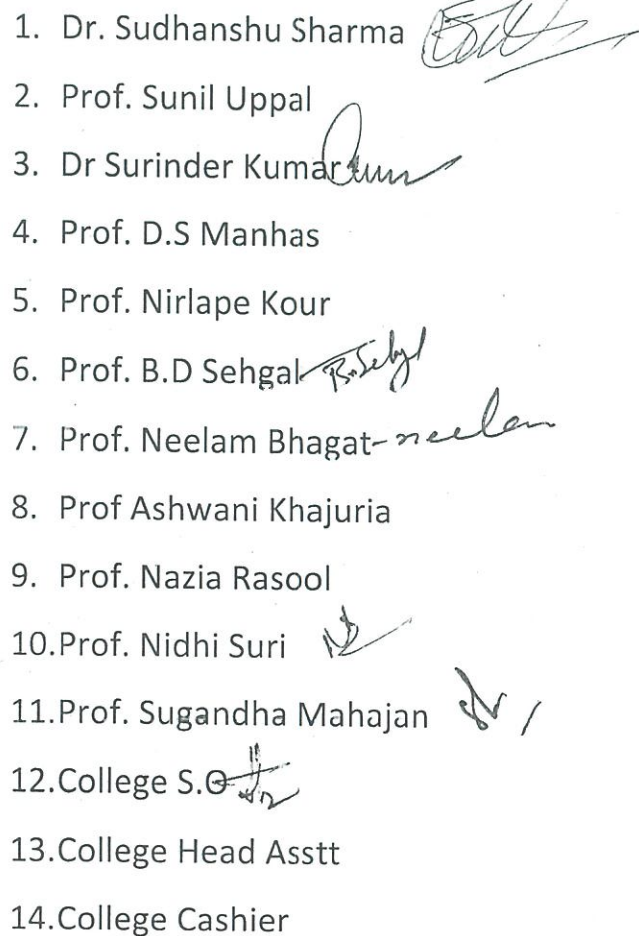 1. Dr. Sudhanshu Sharma
2. Prof. Sunil Uppal
3. Dr Surinder Kumar
4. Prof. D.S Manhas
5. Prof. Nirlape Kour
6. Prof. B.D Sehgal
7. Prof. Neelam Bhagat- neelam
8. Prof Ashwani Khajuria
9. Prof. Nazia Rasool
10.Prof. Nidhi Suri
11.Prof. Sugandha Mahajan
12.College S.O
13.College Head Asstt
14.College Cashier